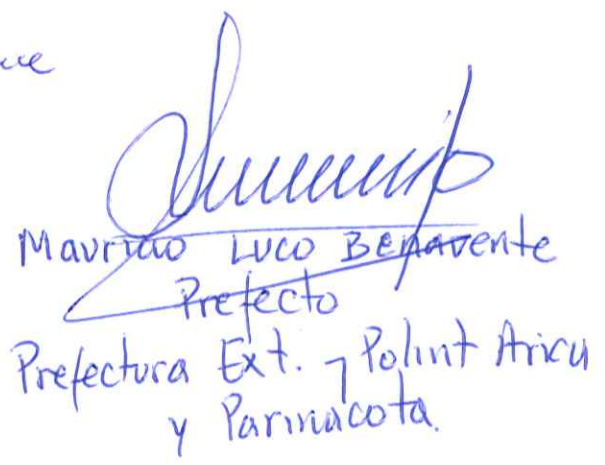 Mauricio Luco Benavente
Prefecto
Prefectura Ext. y Polint Arica
y Parinacota.